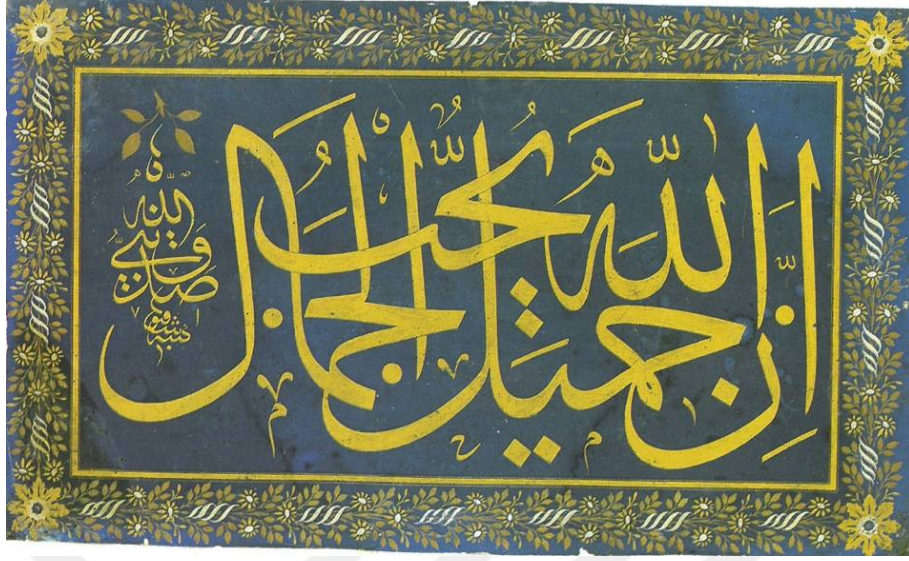 اِنَّ اللّٰهَ جَمِيلٌ يُحِبُّ الْجَمَالَ
صدق نبي الله